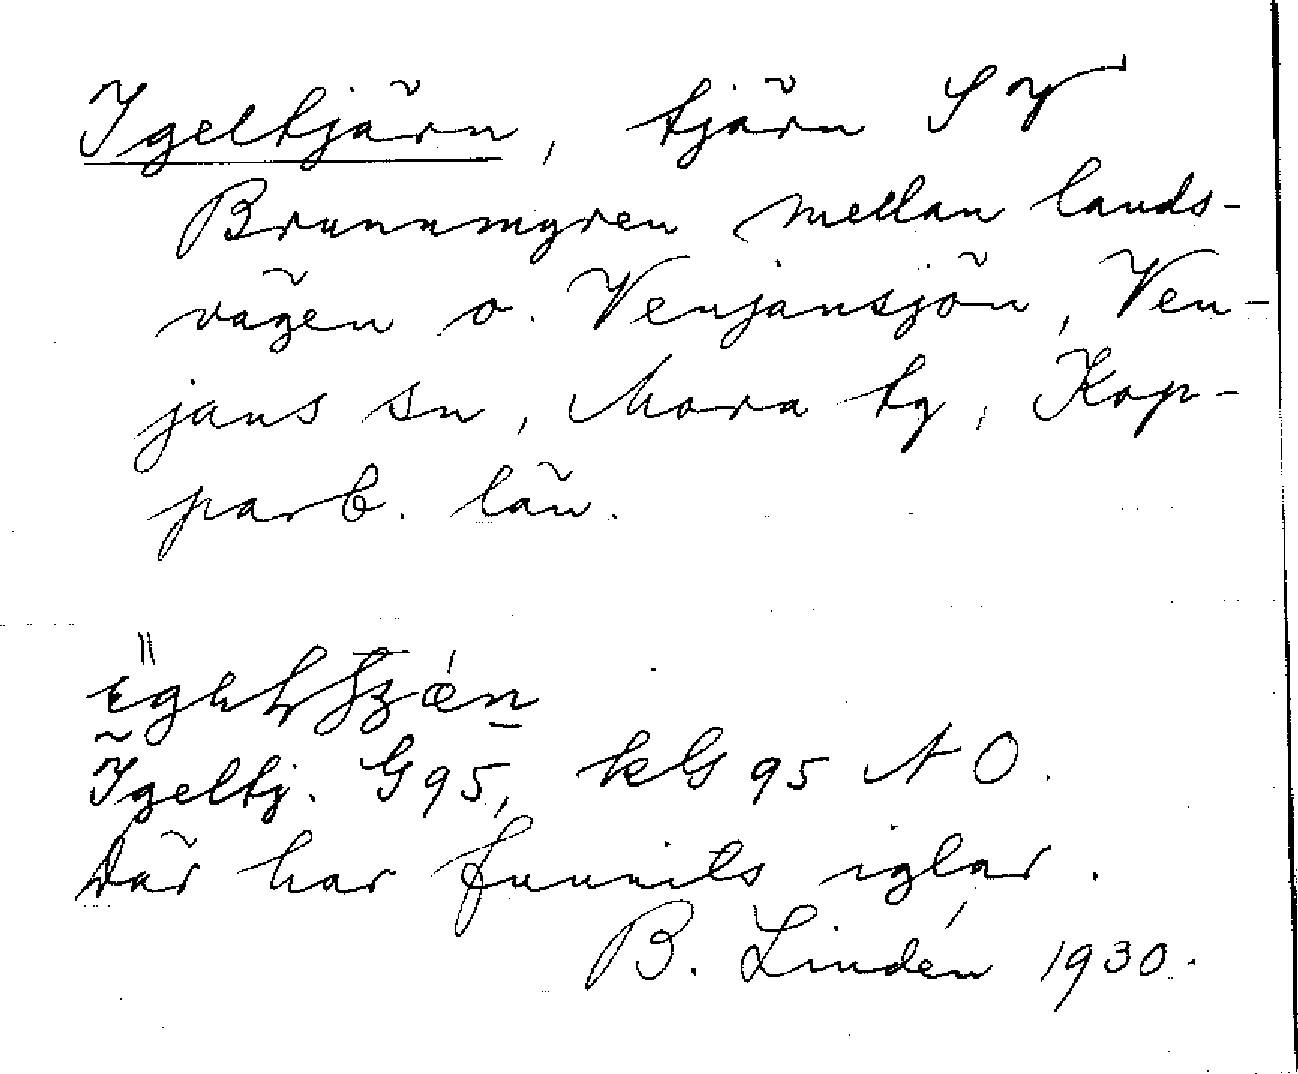 Igeltjärn, tjärn SV
Brunnmyren mellan lands-
vägen o. Venjansjön, Ven-
jans sn, Mora tg, Kop-
parb. län.
Igeltj. G95, kG 95 NO.
Där har funnits iglar.
B. Lindén 1930.